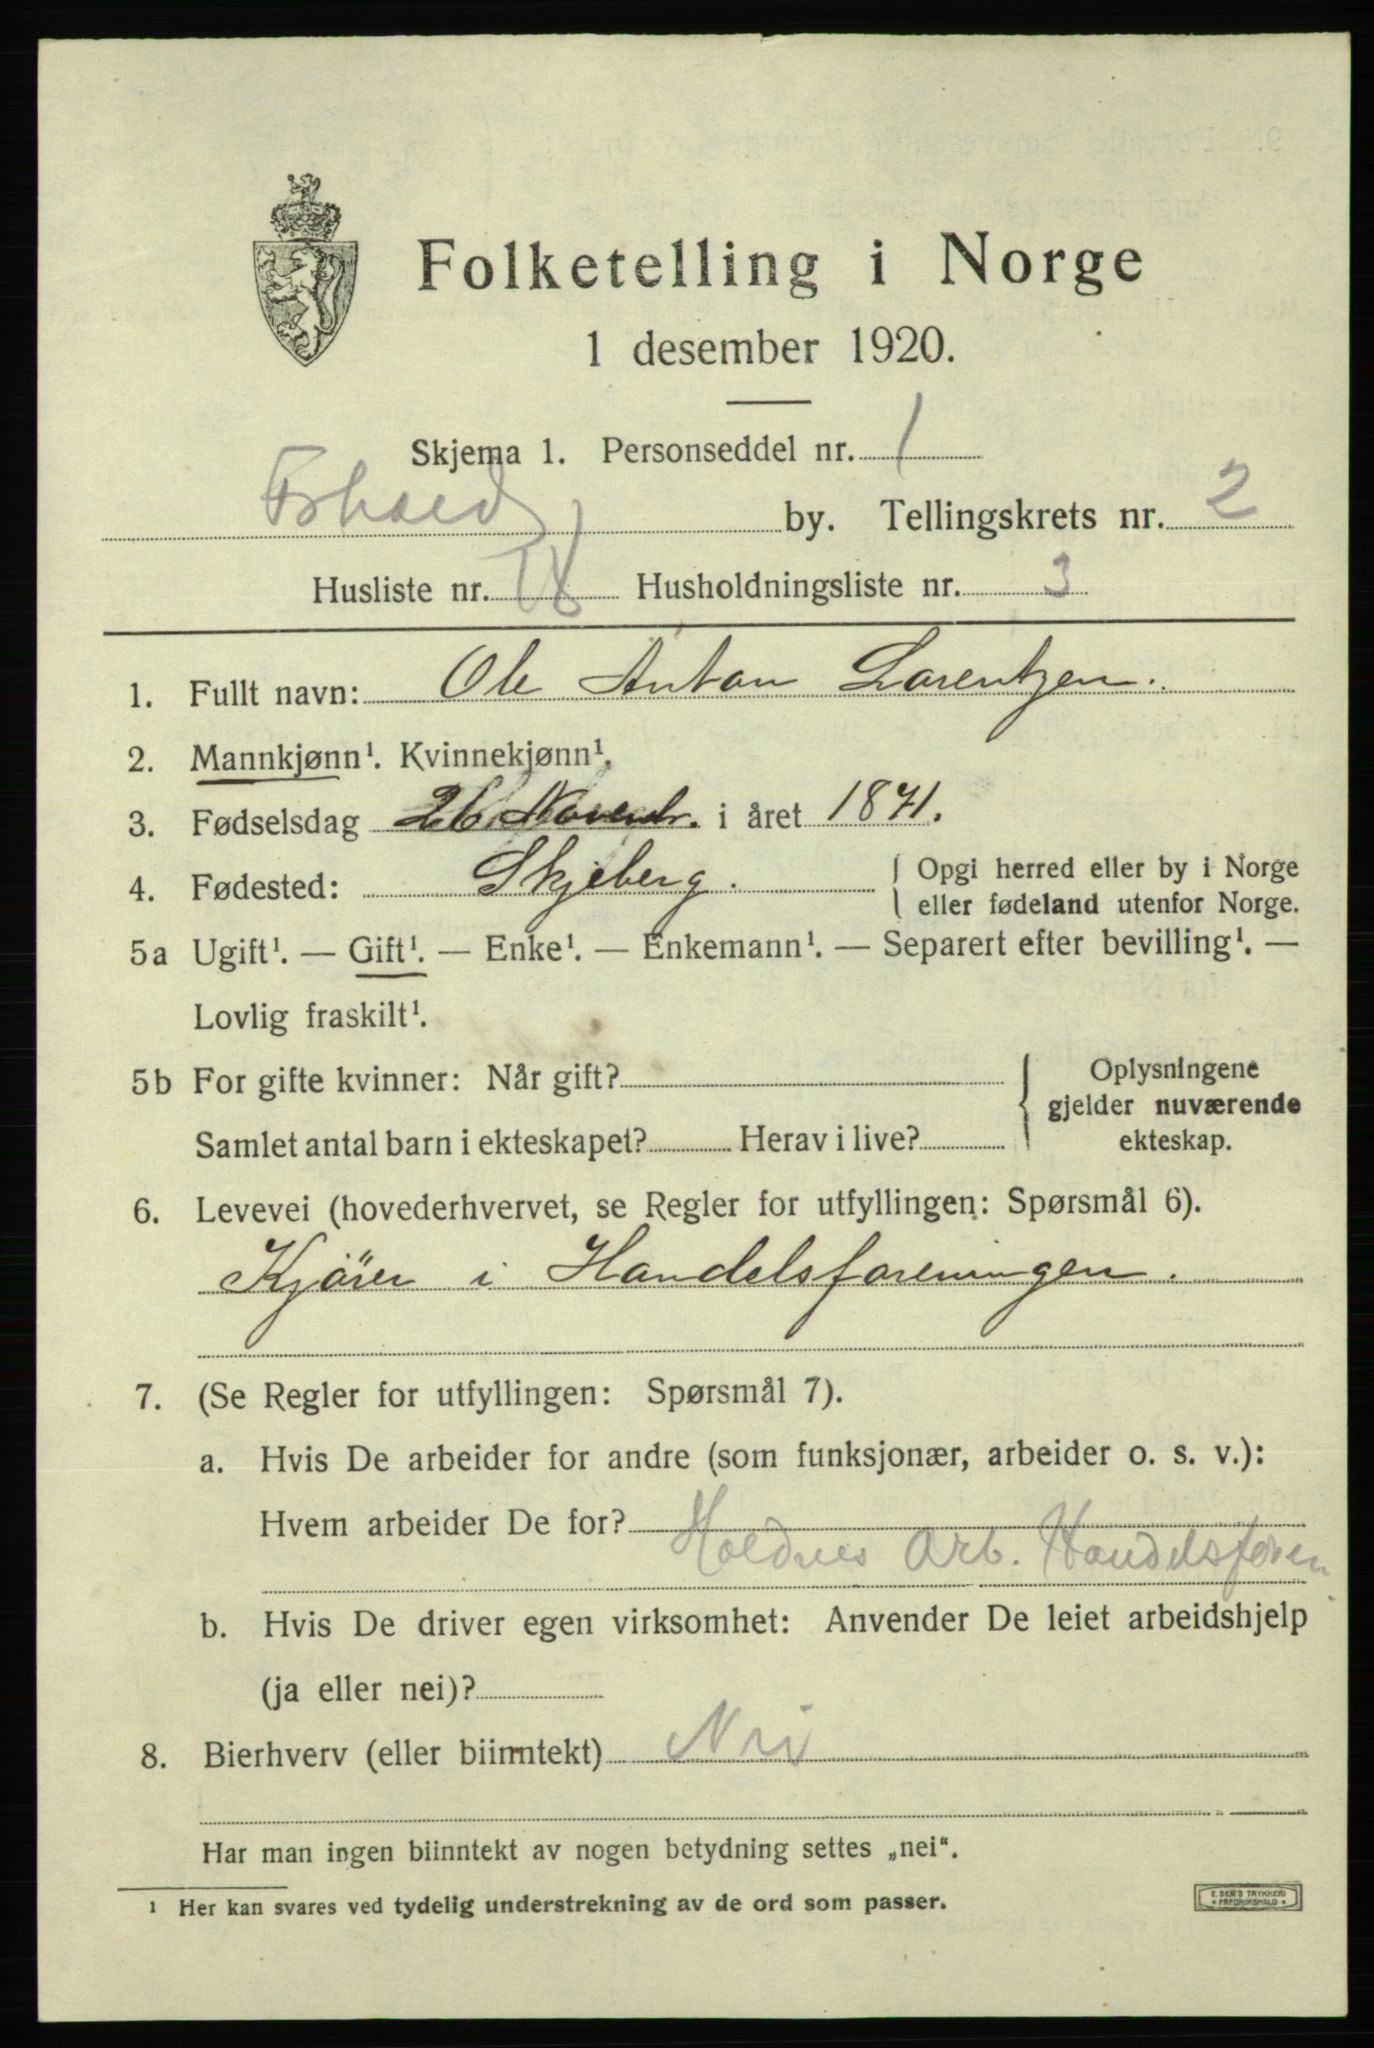 Folketelling i Norge
1 desember 1920.
Skjema 1. Personseddel nr. 1
Frhald by. Tellingskrets nr. 2
Husliste nr. 18 Husholdningsliste nr. 3
1. Fullt navn: Ole Anton Lorentzen.
2. Mannkjønn¹. Kvinnekjønn¹.
3. Fødselsdag 26. Novembr. i året 1871.
4. Fødested: Skjeberg. { Opgi herred eller by i Norge
eller fødeland utenfor Norge.
5a Ugift¹. — Gift¹. — Enke¹. — Enkemann¹. — Separert efter bevilling¹. —
Lovlig fraskilt¹.
5b For gifte kvinner: Når gift? { Oplysningene
gjelder nuværende
Samlet antal barn i ekteskapet? Herav i live? ekteskap.
6. Levevei (hovederhvervet, se Regler for utfyllingen: Spørsmål 6).
Kjörer i Handelsforeningen.
7. (Se Regler for utfyllingen: Spørsmål 7).
a. Hvis De arbeider for andre (som funksjonær, arbeider o. s. v.):
Hvem arbeider De for?
Arb. Handelsforen
b. Hvis De driver egen virksomhet: Anvender De leiet arbeidshjelp
(ja eller nei)?
8. Bierhverv (eller biinntekt) Nei
Har man ingen biinntekt av nogen betydning settes „nei“.
¹ Her kan svares ved tydelig understrekning av de ord som passer.
E. SEM'S TRYKKERI
• FREDRIKSHALD •